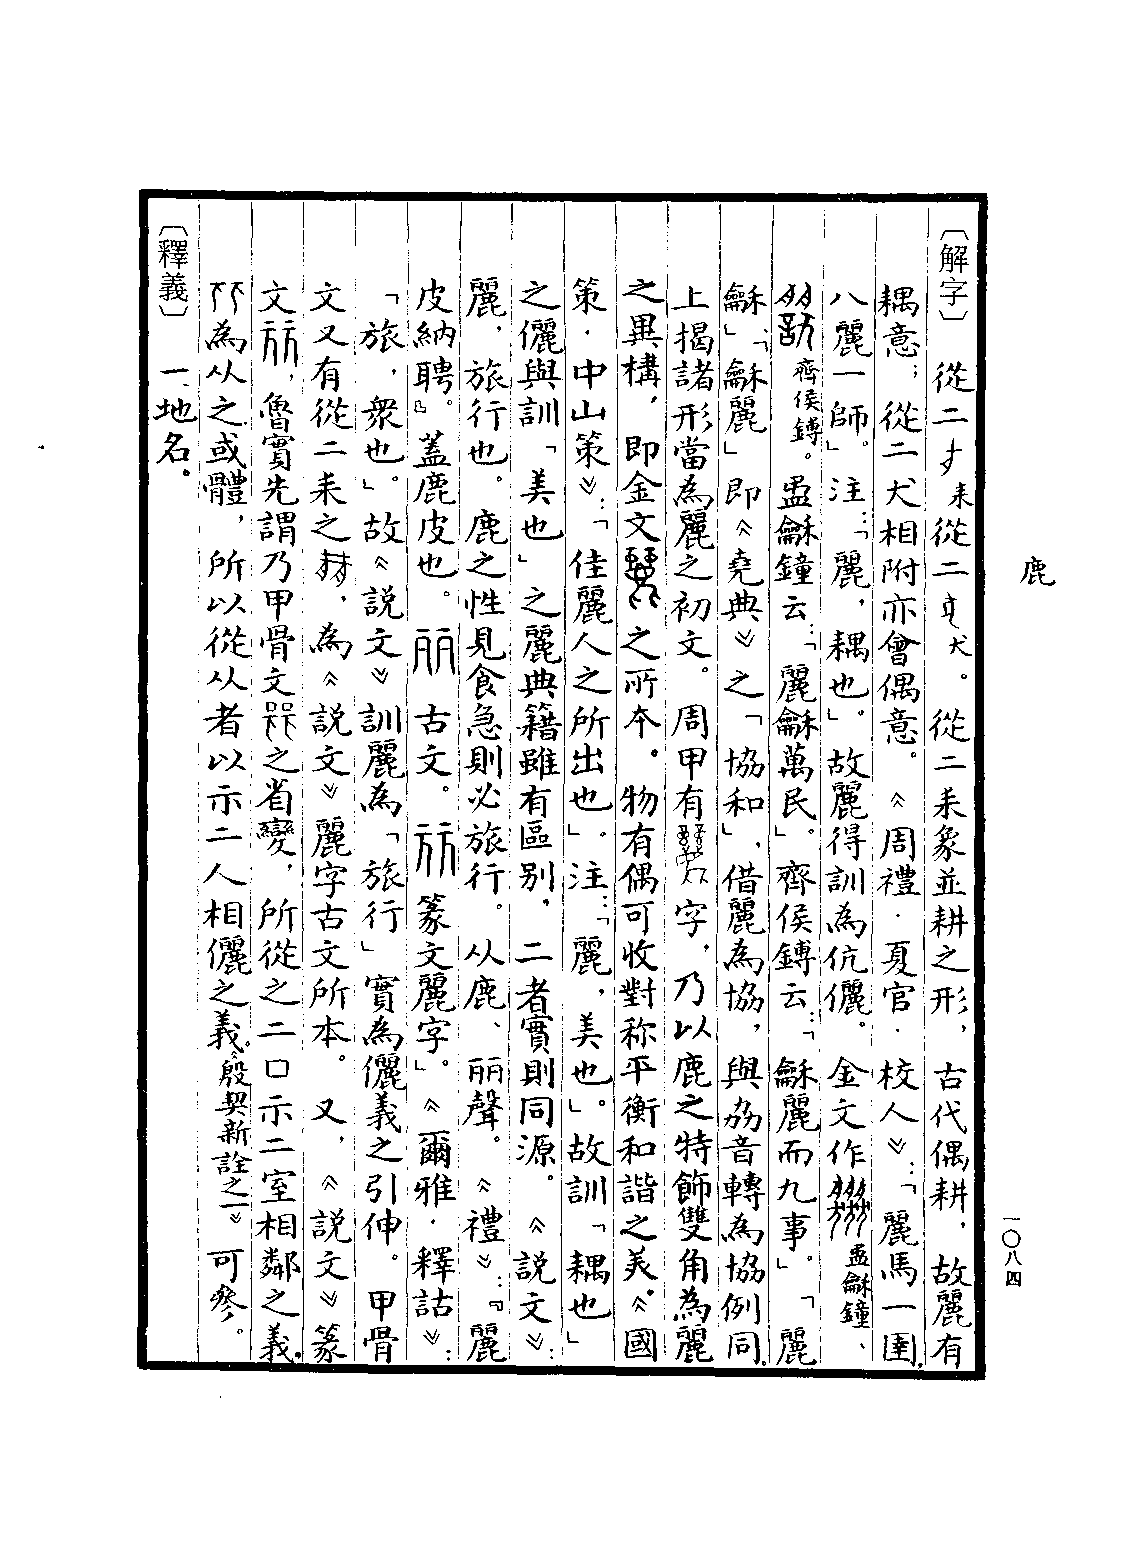 鹿
一〇八四
〔解字〕從二耒從二犬。從二耒象並耕之形，古代偶耕，故麗有
耦意；從二犬相附亦會偶意。《周禮·夏官·校人》：「麗馬一圉，
八麗一師。」注：「麗，耦也。」故麗得訓為伉儷。金文作盄龢鐘、
齊侯鎛。盄龢鐘云：「麗龢萬民」。齊侯鎛云：「龢麗而九事」。「麗
龢」、「龢麗」即《堯典》之「協和」，借麗為協，與劦音轉為協例同。
上揭諸形當為麗之初文。周甲有字，乃以鹿之特飾雙角為麗
之異構，即金文之所本。物有偶可收對称平衡和諧之美。《國
策·中山策》：「佳麗人之所出也」。注：「麗，美也」。故訓「耦也」
之儷與訓「美也」之麗典籍雖有區别，二者實則同源。《說文》：
麗，旅行也。鹿之性見食急則必旅行。从鹿、丽聲。《禮》：『麗
皮納聘。』蓋鹿皮也。古文。篆文麗字」。《爾雅·釋詁》：
「旅，衆也。」故《說文》訓麗為「旅行」實為儷義之引伸。甲骨
文又有從二耒之，為《說文》麗字古文所本。又，《說文》篆
文，魯實先謂乃甲骨文之省變，所從之二口示二室相鄰之義，
為从之或體，所以從从者以示二人相儷之義。《殷契新詮之一》可參。
〔釋義〕一、地名。